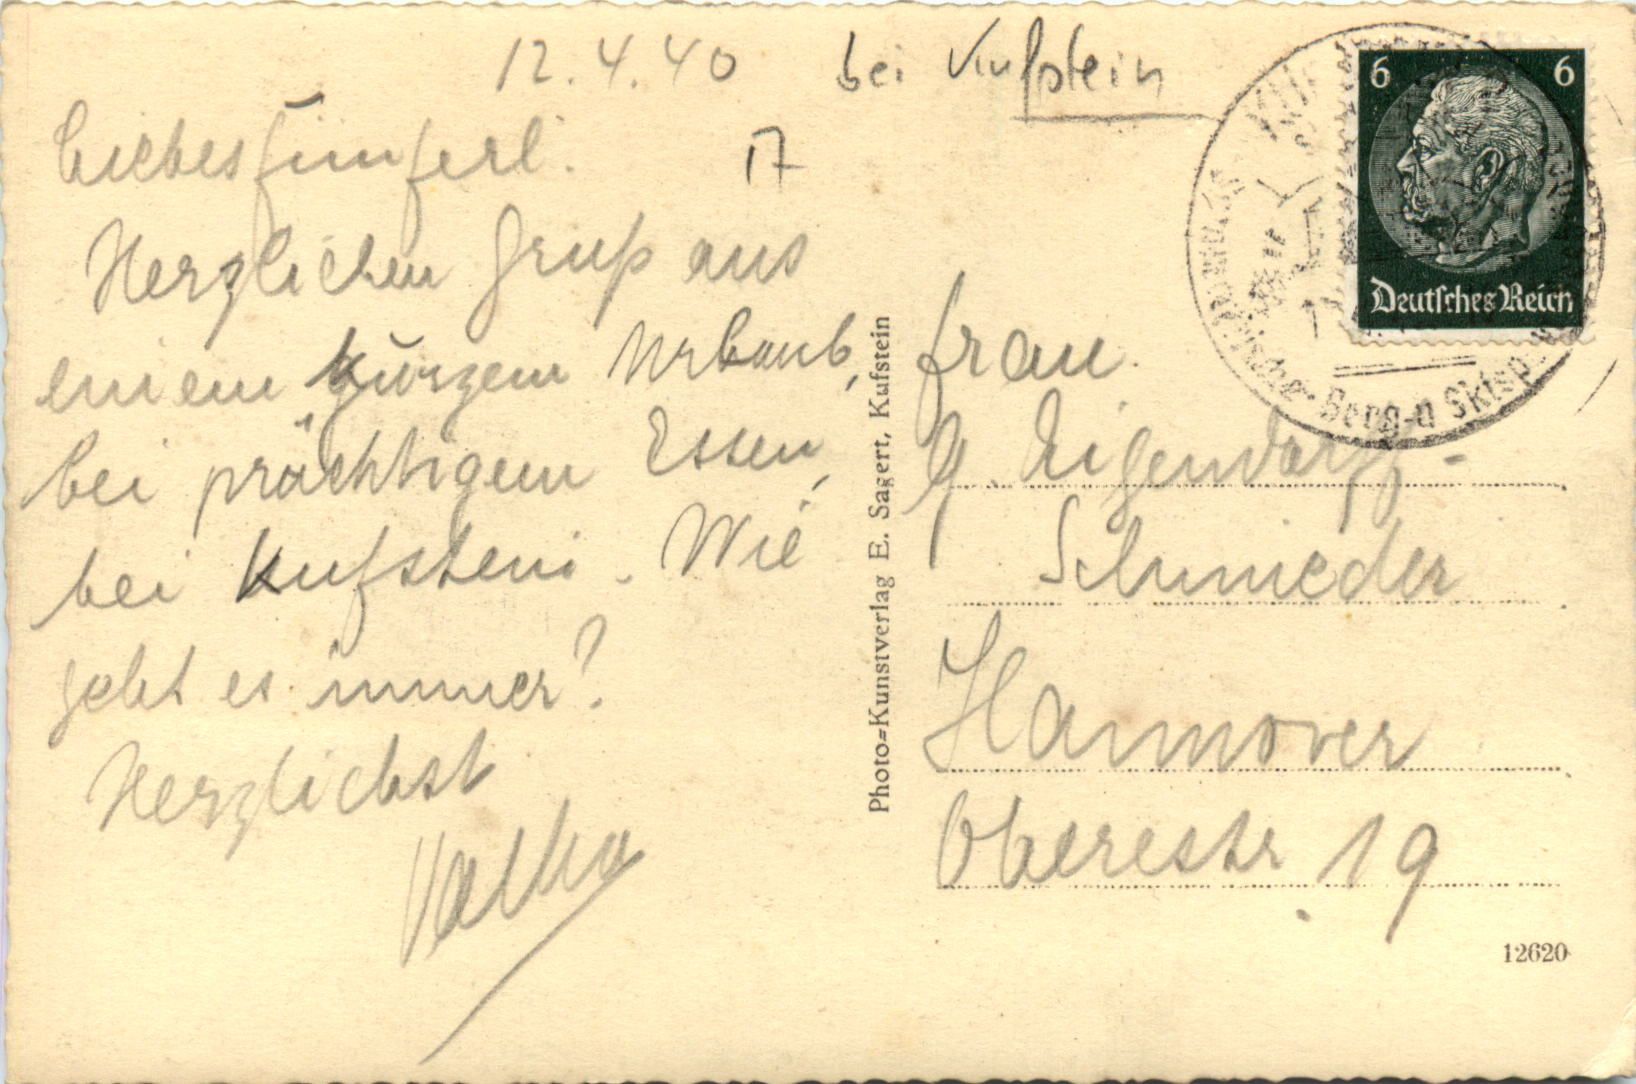 12.4.40 bei Kufstein
17
Liebes fünferl.
Herzlichen Gruß aus
einem kurzem Urlaub,
bei prächtigem Essen,
bei Kufstein. Wie
geht es immer?
Herzlichst
Photo=Kunstverlag E. Sagert, Kufstein
6 6
Deutsches Reich
Berg-u Skisp
Frau
G.
Schmieder
Hannover
Oberestr. 19
12620